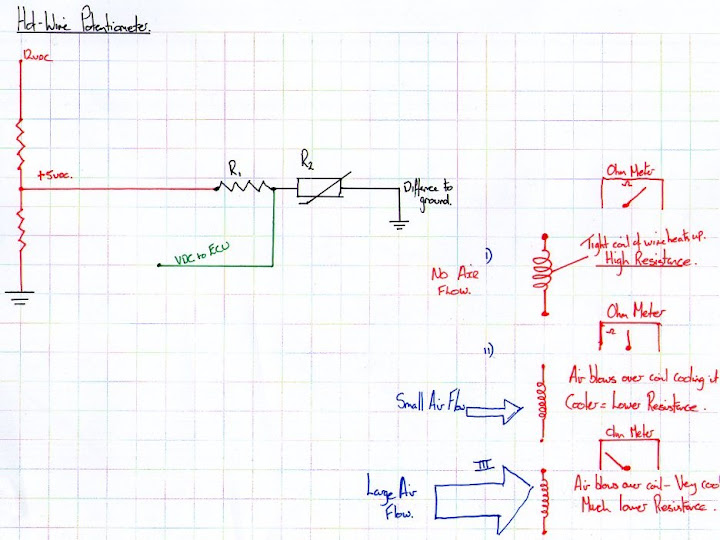 Hot-Wire Potentiometer.
12VDC
+5VDC.
R1
R2
Diffence to
ground.
VDC to ECU
Ohm Meter
Ω
I)
No Air
Flow.
Tight coil of wire heats up.
High Resistance.
Ohm Meter
Ω
II)
Small Air Flow
Air blows over coil cooling it
Cooler = Lower Resistance.
Ohm Meter
III
Large Air
Flow.
Air blows over coil - Very cool
Much lower Resistance.